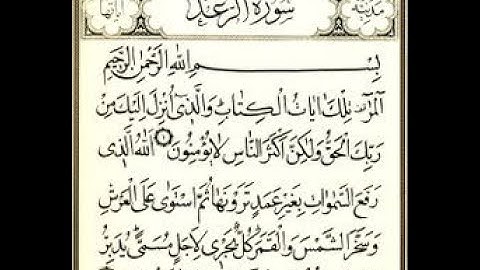 مدنية سورة الرعد آياتها
بِسْمِ اللهِ الرَّحْمٰنِ الرَّحِيمِ
الٓمٓرٰ تِلْكَ اٰيَاتُ الْكِتَابِ وَالَّذٖٓى اُنْزِلَ اِلَيْكَ مِنْ
رَبِّكَ الْحَقُّ وَلٰكِنَّ اَكْثَرَ النَّاسِ لَا يُؤْمِنُونَ ١ اَللهُ الَّذٖى
رَفَعَ السَّمٰوَاتِ بِغَيْرِ عَمَدٍ تَرَوْنَهَا ثُمَّ اسْتَوٰى عَلَى الْعَرْشِ
وَسَخَّرَ الشَّمْسَ وَالْقَمَرَ كُلٌّ يَجْرٖى لِاَجَلٍ مُسَمًّى يُدَبِّرُ